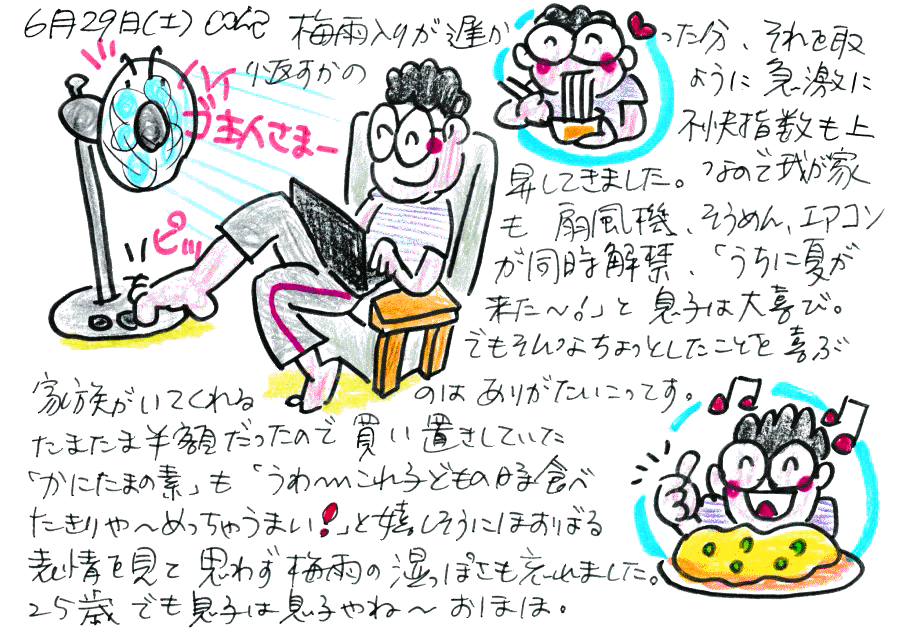 6月29日(土)
梅雨入りが遅かった分、それを取
り返すかのように急激に
不快指数も上
昇してきました。なので我が家
も扇風機、そうめん、エアコン
が同時解禁、「うちに夏が
来た〜!」と息子は大喜び。
でもそんなちょっとしたことを喜ぶ
家族がいてくれるのはありがたいこってす。
たまたま半額だったので買い置きしていた
「かにたまの素」も「うわ〜これ子どもの時食べ
たきりや〜めっちゃうまい!」と嬉しそうにほおばる
表情を見て思わず梅雨の湿っぽさも忘れました。
25歳でも息子は息子やね〜おほほ。
ハイ
ゴ主人さまー
ピッ